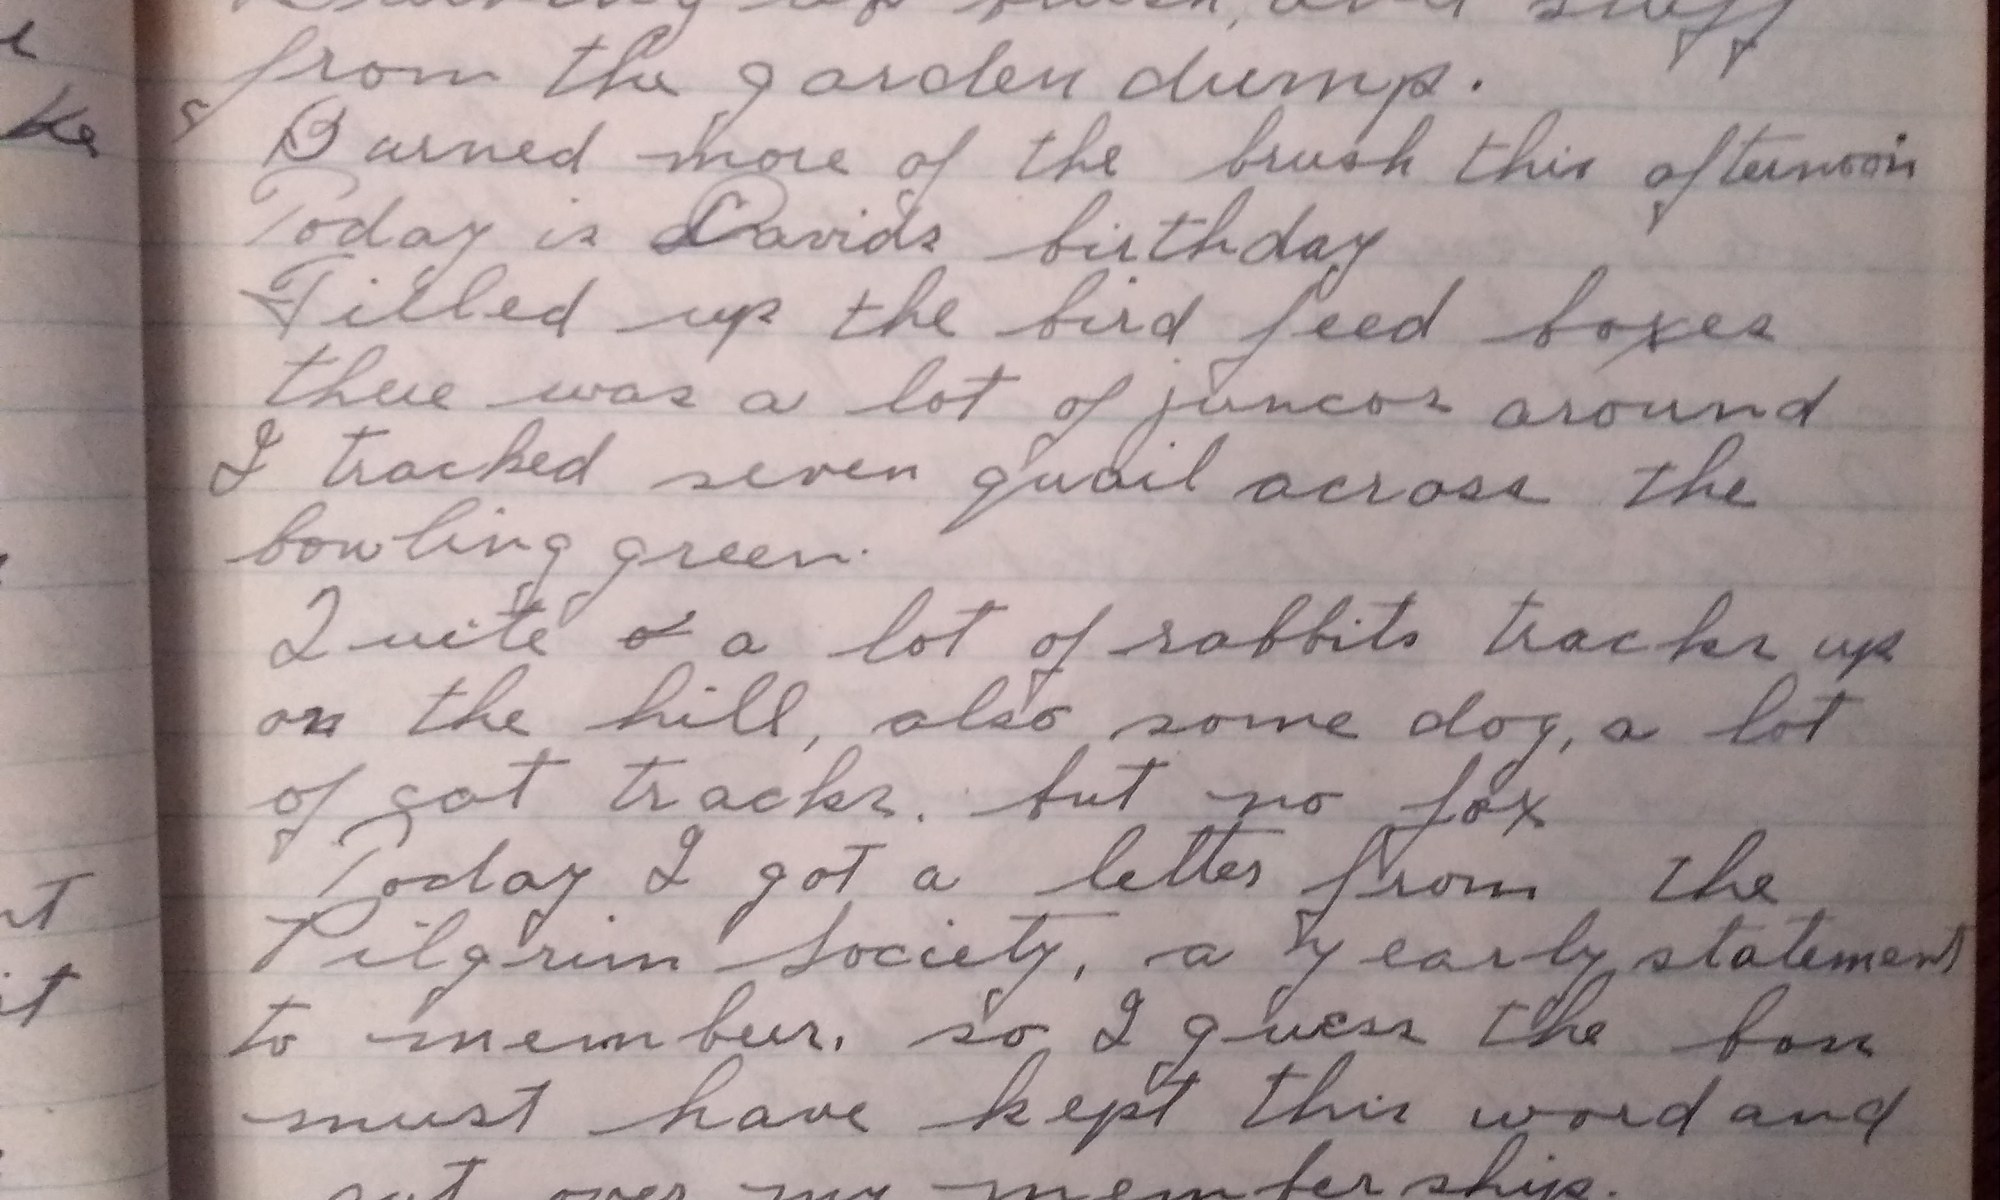 up brush, and stuff
from the garden dump.
Burned more of the brush this afternoon
Today is Davids birthday
Filled up the bird feed boxes
there was a lot of juncos around
I tracked seven quail across the
bowling green.
Quite a lot of rabbits tracks up
on the hill, also some dog, a lot
of cat tracks. but no fox
Today I got a letter from the
Pilgrim Society, a yearly statement
to member. so I guess the boss
must have kept this word and
put over my membership.